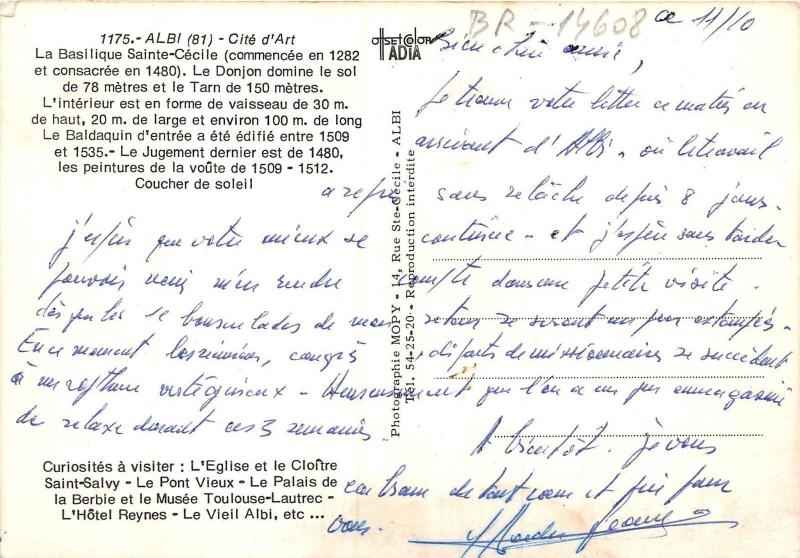 1175.- ALBI (81) - Cité d'Art
La Basilique Sainte-Cécile (commencée en 1282
et consacrée en 1480). Le Donjon domine le sol
de 78 mètres et le Tarn de 150 mètres.
L'intérieur est en forme de vaisseau de 30 m.
de haut, 20 m. de large et environ 100 m. de long
Le Baldaquin d'entrée a été édifié entre 1509
et 1535.- Le Jugement dernier est de 1480,
les peintures de la voûte de 1509 - 1512.
Coucher de soleil
j'espère que votre mieux se
pouvoir venir m'en rendre
dès que les
En ce moment congrès
à un rythme vertigineux - Heureusement que l'on a un peu emmagasiné
de relaxe durant ces 3 semaines.
Curiosités à visiter : L'Eglise et le Cloître
Saint-Salvy - Le Pont Vieux - Le Palais de
la Berbie et le Musée Toulouse-Lautrec -
L'Hôtel Reynes - Le Vieil Albi, etc ...
OFFSET COLOR
IADIA
Photographie MOPY - 14, Rue Ste-Cécile - ALBI
Tél. 54-25-20 - Reproduction interdite
BR-14608
ce 11/10
Bien chère amie,
Je trouve votre lettre ce matin en
arrivant d'Albi - où le travail
a repris sans relâche depuis 8 jours.
continue - et j'espère sans tarder
petite visite.
se seront un peu estompés -
départs de missionnaires se succèdent
A bientôt. je vous
embrasse de tout coeur et prie pour
vous.